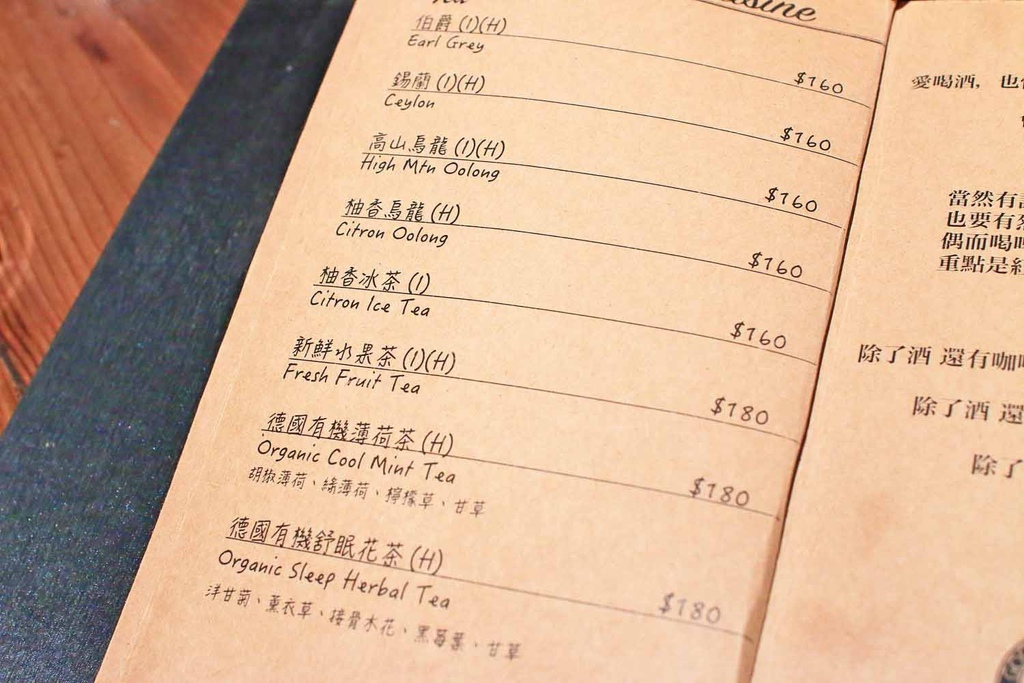 伯爵 (I)(H)
Earl Grey
$160
錫蘭 (I)(H)
Ceylon
$160
高山烏龍 (I)(H)
High Mtn Oolong
$160
柚香烏龍 (H)
Citron Oolong
$160
柚香冰茶 (I)
Citron Ice Tea
$160
新鮮水果茶 (I)(H)
Fresh Fruit Tea
$180
德國有機薄荷茶 (H)
Organic Cool Mint Tea
$180
胡椒薄荷、綠薄荷、檸檬草、甘草
德國有機舒眠花茶 (H)
Organic Sleep Herbal Tea
$180
洋甘菊、薰衣草、接骨木花、黑莓葉、甘草
愛喝酒,也
當然有
也要有
偶而喝
重點是
除了酒 還有咖
除了酒 還
除了